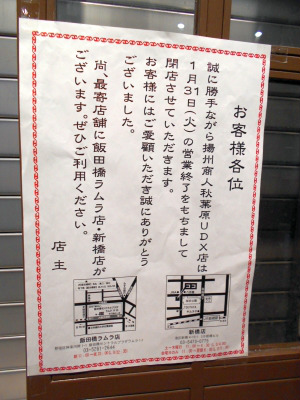 お客様各位
誠に勝手ながら揚州商人秋葉原UDX店は
1月31日(火)の営業終了をもちまして
閉店させていただきます。
お客様にはご愛顧いただき誠にありがとう
ございました。
尚、最寄店舗に飯田橋ラムラ店・新橋店が
ございます。ぜひご利用ください。
店主
飯田橋ラムラ店
新橋店